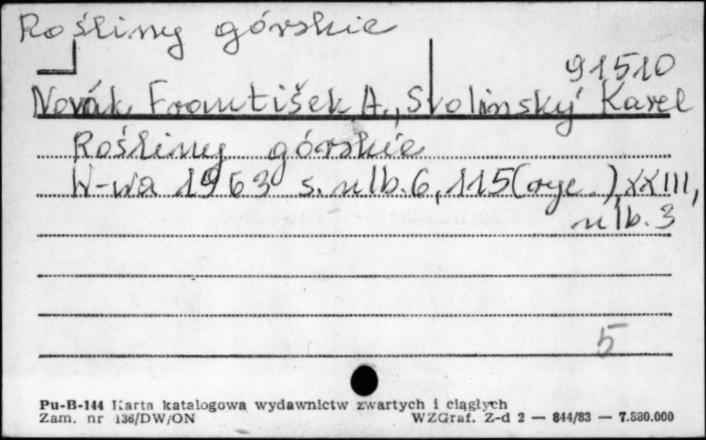 Rośliny górskie
91510
Novák František A., Svolinský Karel
Rośliny górskie
W-wa 1963 s. nlb. 6, 115 (ryc.), XXIII,
nlb. 3
5
Pu-B-144 Karta katalogowa wydawnictw zwartych i ciągłych
Zam. nr 136/DW/ON WZGraf. Z-d 2 — 844/83 — 7.880.000